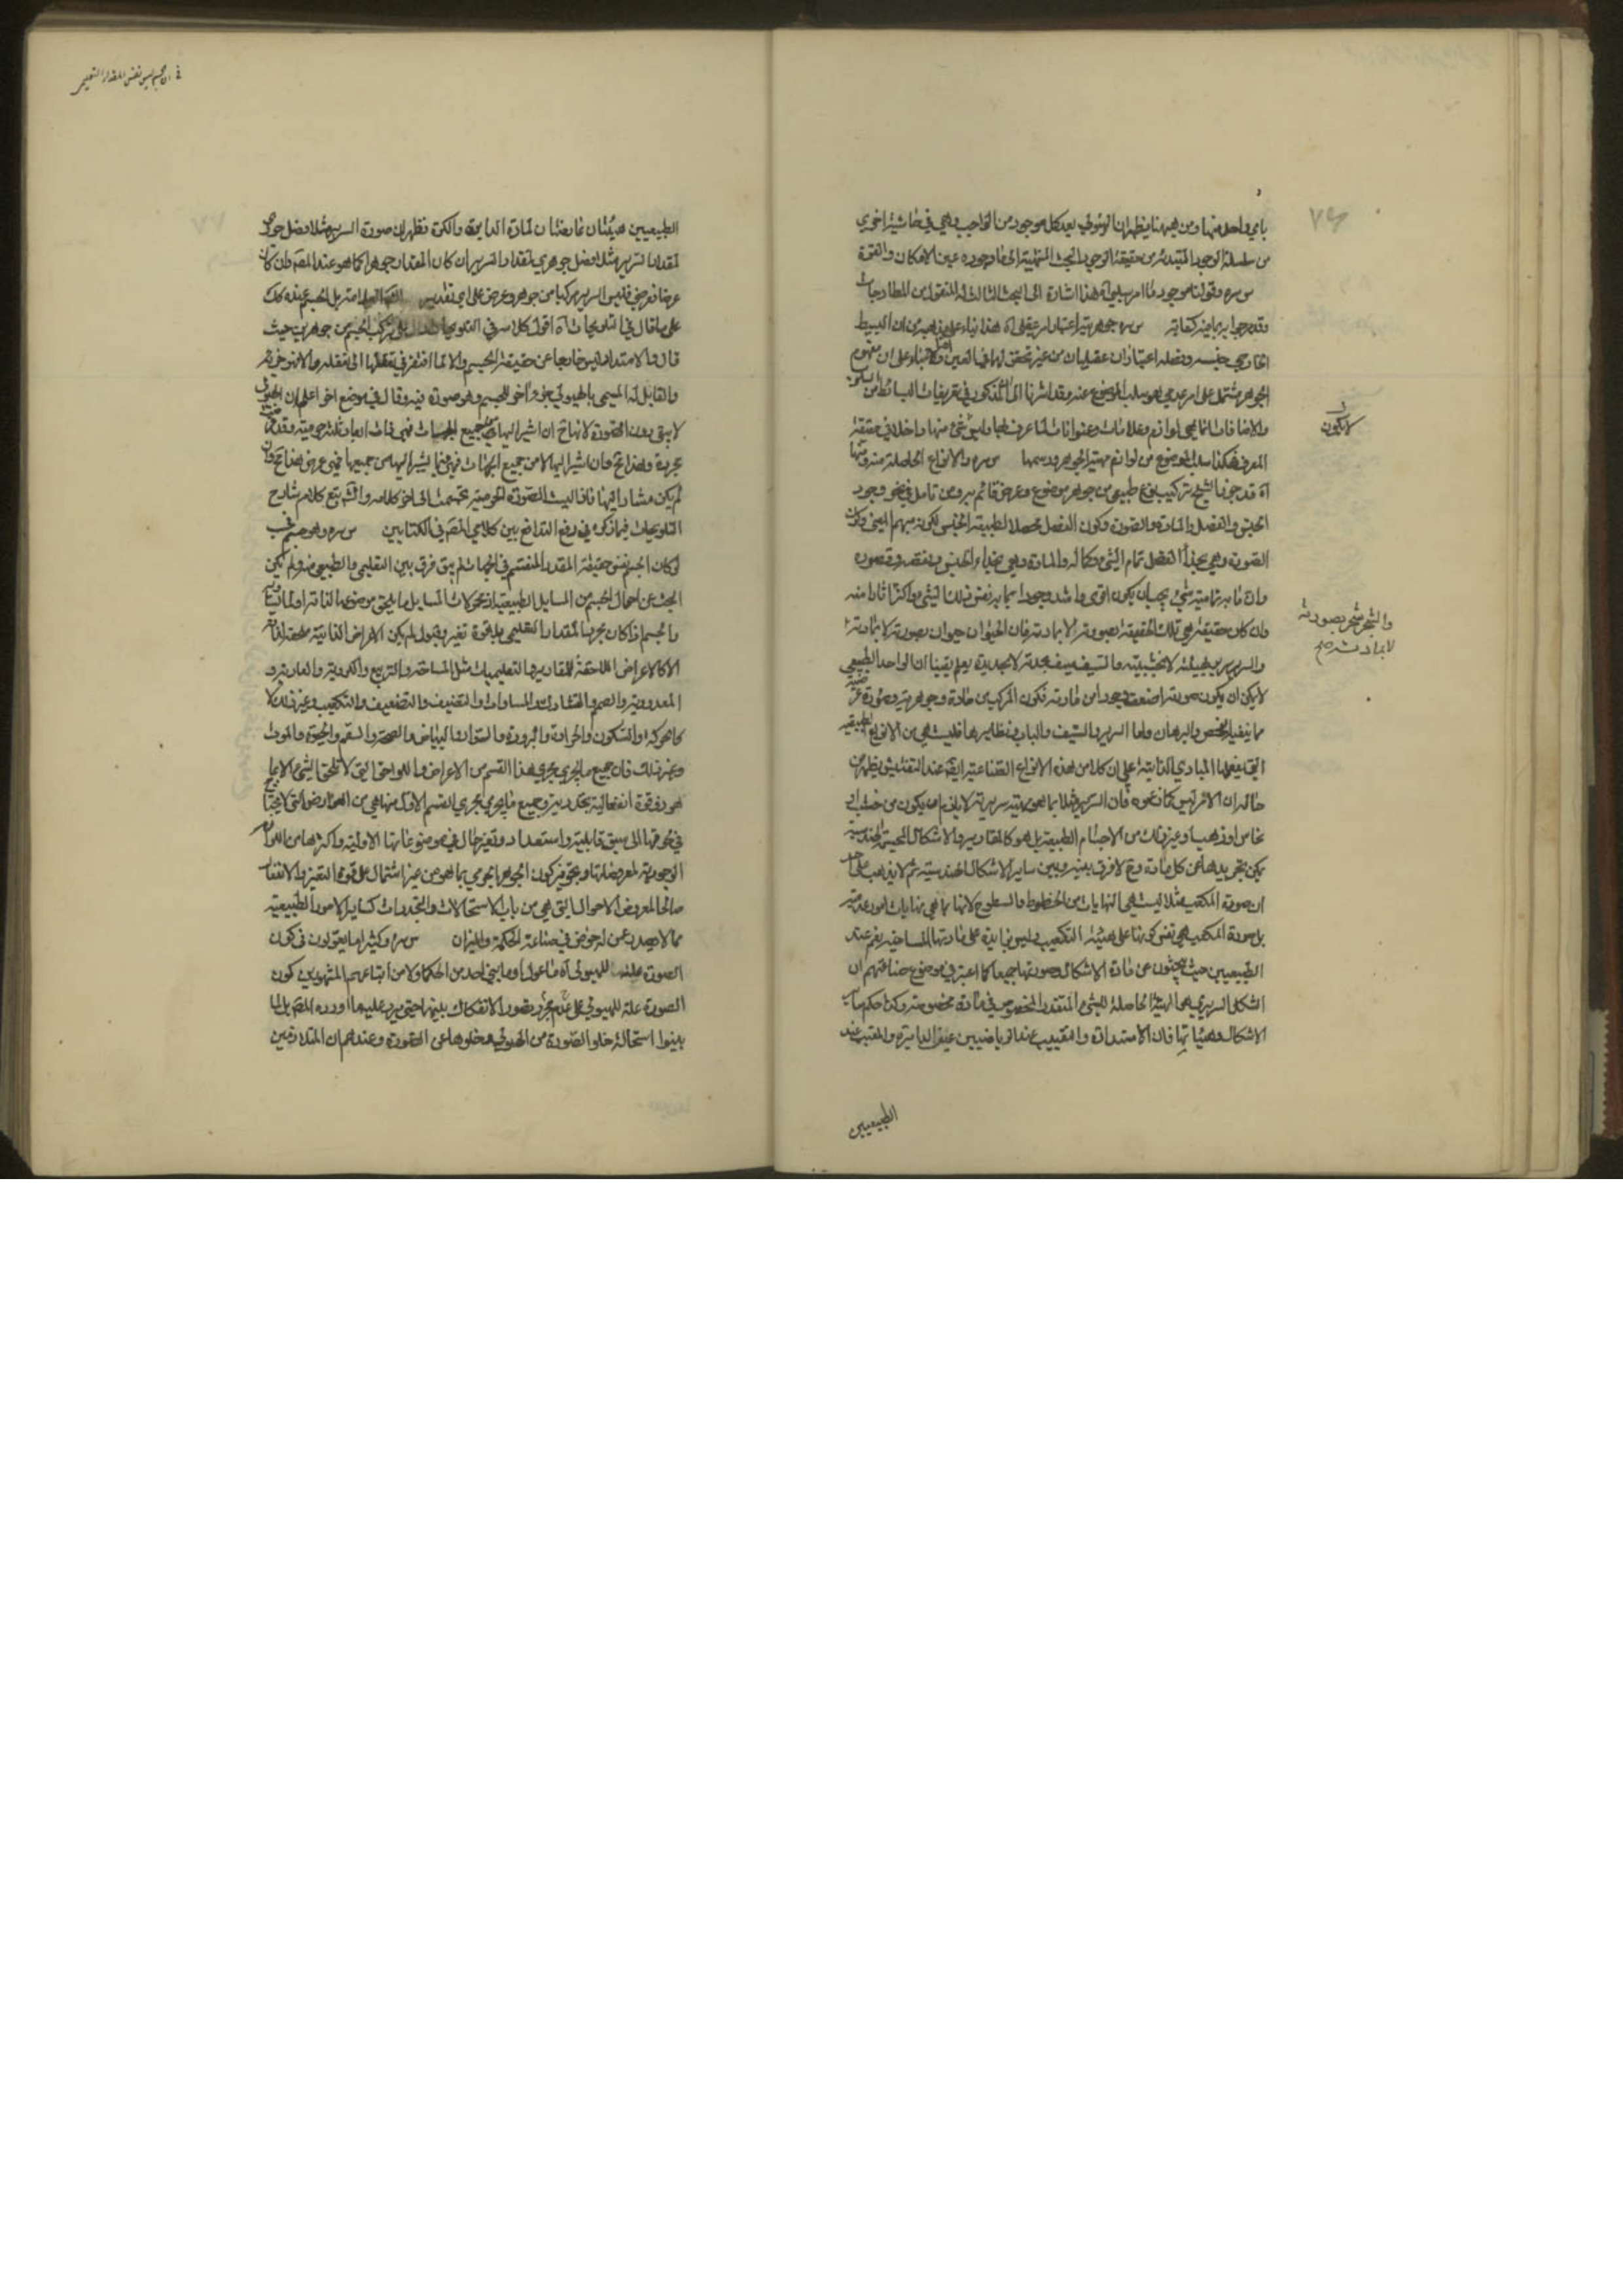 بأي واحد منها ومن هيهنا يظهر ان الهيولى بعد كل موجود من الواجب وهي في حاشية اخرى
من سلسلة الوجود المبتدئة من حقيقة الوجود البحت المنتهية الى ما وجوده عين الامكان والقوة
س سره وقولنا موجود لا امر سلبي آه هذا اشارة الى البحث الثالث
وقد مر جوابه بما فيه كفاية س سره جوهرية اعتبار عقلى آه هذا بناء على ان البسيط
الخارجي جنسه وفصله اعتباران عقليان من غير تحقق لهما في العين بناء على ان مفهوم
الجوهر مشتمل على امر عدمي هو سلب الموضوع عنه وقد اشرنا الى ان المذكور في تعريفات البسائط من السلوب
والاضافات انما هي لوازم وعلامات وعنوانات لما عرف بها وليس شيء منها داخلا في حقيقة
المعرف فهكذا سلب الموضوع من لوازم مهية الجوهر ورسمها س سره والانواع الحاصلة منه ومنها
آه قد جوز الشيخ تركيب نوع طبيعى من جوهر موضوع وعرض قائم به ومن تامل في نحو وجود
الجنس والفصل والمادة والصورة وكون الفصل محصلا لطبيعة الجنس لكونه مبهم المعنى وكون
الصورة وهي بحذاء الفصل تمام الشيء وكماله والمادة وهي بحذاء الجنس نقصه وقصوره
وان ما به تمامية شيء يجب ان يكون اقوى واشد وجودا مما به نقص ذلك الشيء واكثر اثارا منه
وان كان حقيقة هي تلك الحقيقة بصورته لا بمادته فان الحيوان حيوان بصورته لا بمادته
والسرير سرير بهيئته لا بخشبيته والسيف سيف بحدته لا بحديده يعلم يقينا ان الواحد الطبيعي
لا يمكن ان يكون صورته اضعف وجودا من مادته فكون المركب من مادة جوهرية وصورة عرضية
مما ينفيه الفحص والبرهان واما السرير والسيف والباب ونظايرها فليست هي من الانواع الطبيعية
التي يفعلها المبادي الذاتية على ان كلا من هذه الانواع الصناعية ايضا عند التفتيش يظهر من
حاله ان الامر ليس كما زعموه فان السرير مثلا بما هو سرير لا يلزم انه يكون من خشب او
نحاس او ذهب او غير ذلك من الاجسام الطبيعية بل هو كالمقادير والاشكال الهندسية
يمكن تجريدها عن كل مادة وح لا فرق بينه وبين ساير الاشكال الهندسية ثم لا يذهب على احد
ان صورة المكعب مثلا ليست هي النهايات من الخطوط والسطوح لانها بما هي نهايات امور عدمية
بل صورة المكعب هي نفس كونها على هيئة التكعيب وليس بزايدة على مادتها المساحية نعم عند
الطبيعيين حيث يبحثون عن مادة الاشكال وصورتها جميعا كما اعتبر في موضوع صناعتهم ان
الشكل السريري هي الهيئة الحاصلة للشيء المتقدر المخصوص في مادة مخصوصة وكذا حكم ساير
الاشكال وهيئاتها فان الاستدارة والتقبيب عند الرياضيين عين الدايرة والقبة وعند
الطبيعيين
لا يكون
والشجر شجر بصورته
لا بمادته صح
٧٦
في ان الجسم ليس نفس المقدار التعليمي
الطبيعيين هيئتان عارضتان لمادة الدايرة والكرة فظهر ان صورة السرير مثلا فصل جوهري
لمقدار السرير مثلا فصل جوهري لمقدار السرير ان كان المقدار جوهرا كما هو عند المص وان كان
عرضا فعرضي فليس السرير مركبا من جوهر وعرض على اي تقدير بل الجسم عنده كذلك
على ما قال في التلويحات آه اقول كلامه في التلويحات يدل على تركب الجسم من جوهرين حيث
قال والامتداد ليس خارجا عن حقيقة الجسم والا لما افتقر في تعقلها الى تعقله والامتداد جزؤه
والقابل له المسمى بالهيولى جزء آخر للجسم وهو صورة فيه وقال في موضع آخر اعلم ان الهيولى
لا يبقى بدون الصورة لانها ح ان اشير اليها من جميع الجهات فهي ذات ابعاد ثلثة جرمية وقد فرضت
مجردة وهذا مح وان اشير اليها لا من جميع الجهات فهي عرض هذا مح وان
لم يكن مشارا اليها فاذا لبست الصورة الجرمية الى آخر كلامه والش تبع كلام شارح
التلويحات فيما ذكره في دفع التدافع بين كلامي المص في الكتابين س سره وهو جسم فحسب
لو كان الجسم نفس حقيقة المقدار المنقسم في الجهات لم يبق فرق بين التعليمي والطبيعي منه ولم يكن
البحث عن احوال الجسم من المسايل الطبيعية اذ محمولات المسايل ما يلحق موضوعها لذاته او لما يساويه
والجسم اذا كان مجرد المقدار التعليمي بلا قوة تغير وقبول لم يكن الاعراض الذاتية ملحقة اياه
الا كالاعراض اللاحقة للمقادير والتعليميات مثل المساحة والتربيع والكروية والعادية و
المعدودية والصمم والتشارك والمساواة والتنصيف والتضعيف والتكعيب وغير ذلك لا
كالحركة والسكون والحرارة والبرودة والسواد والبياض والصحة والسقم والحيوة والموت
وغير ذلك فان جميع ما يجري مجرى هذا القسم من الاعراض واللواحق التي لا تلحق الشيء الا بما
هو ذو قوة انفعالية تجددية وجميع ما يجري مجرى القسم الاول منها هي من العوارض التي لا يحتاج
في عروضها الى سبق قابلية واستعداد وتغير حال في موضوعاتها الاولية واكثرها من اللوازم
الوجودية لمعروضاتها وبتجويز كون الجوهر الجرمي بما هو من غير اشتمال على قوة التغير والانفعال
صالحا لمعروض الاحوال التي هي من باب الاستحالات والتجددات كساير الامور الطبيعية
مما لا يصدر عن له خوض في صناعة الحكمة والميزان س سره وكثيرا ما يقولون في كون
الصورة علة للهيولى آه ما عول وما بنى احد من الحكماء ولا من اتباعهم المشهورين كون
الصورة علة للهيولى على عدم مجرد تصور الانفكاك بينهما حتى يرد عليهم ما اورده المص بل لما
بينوا استحالة خلو الصورة من الهيولى وخلوها عن الصورة وعندهم ان المتلازمين